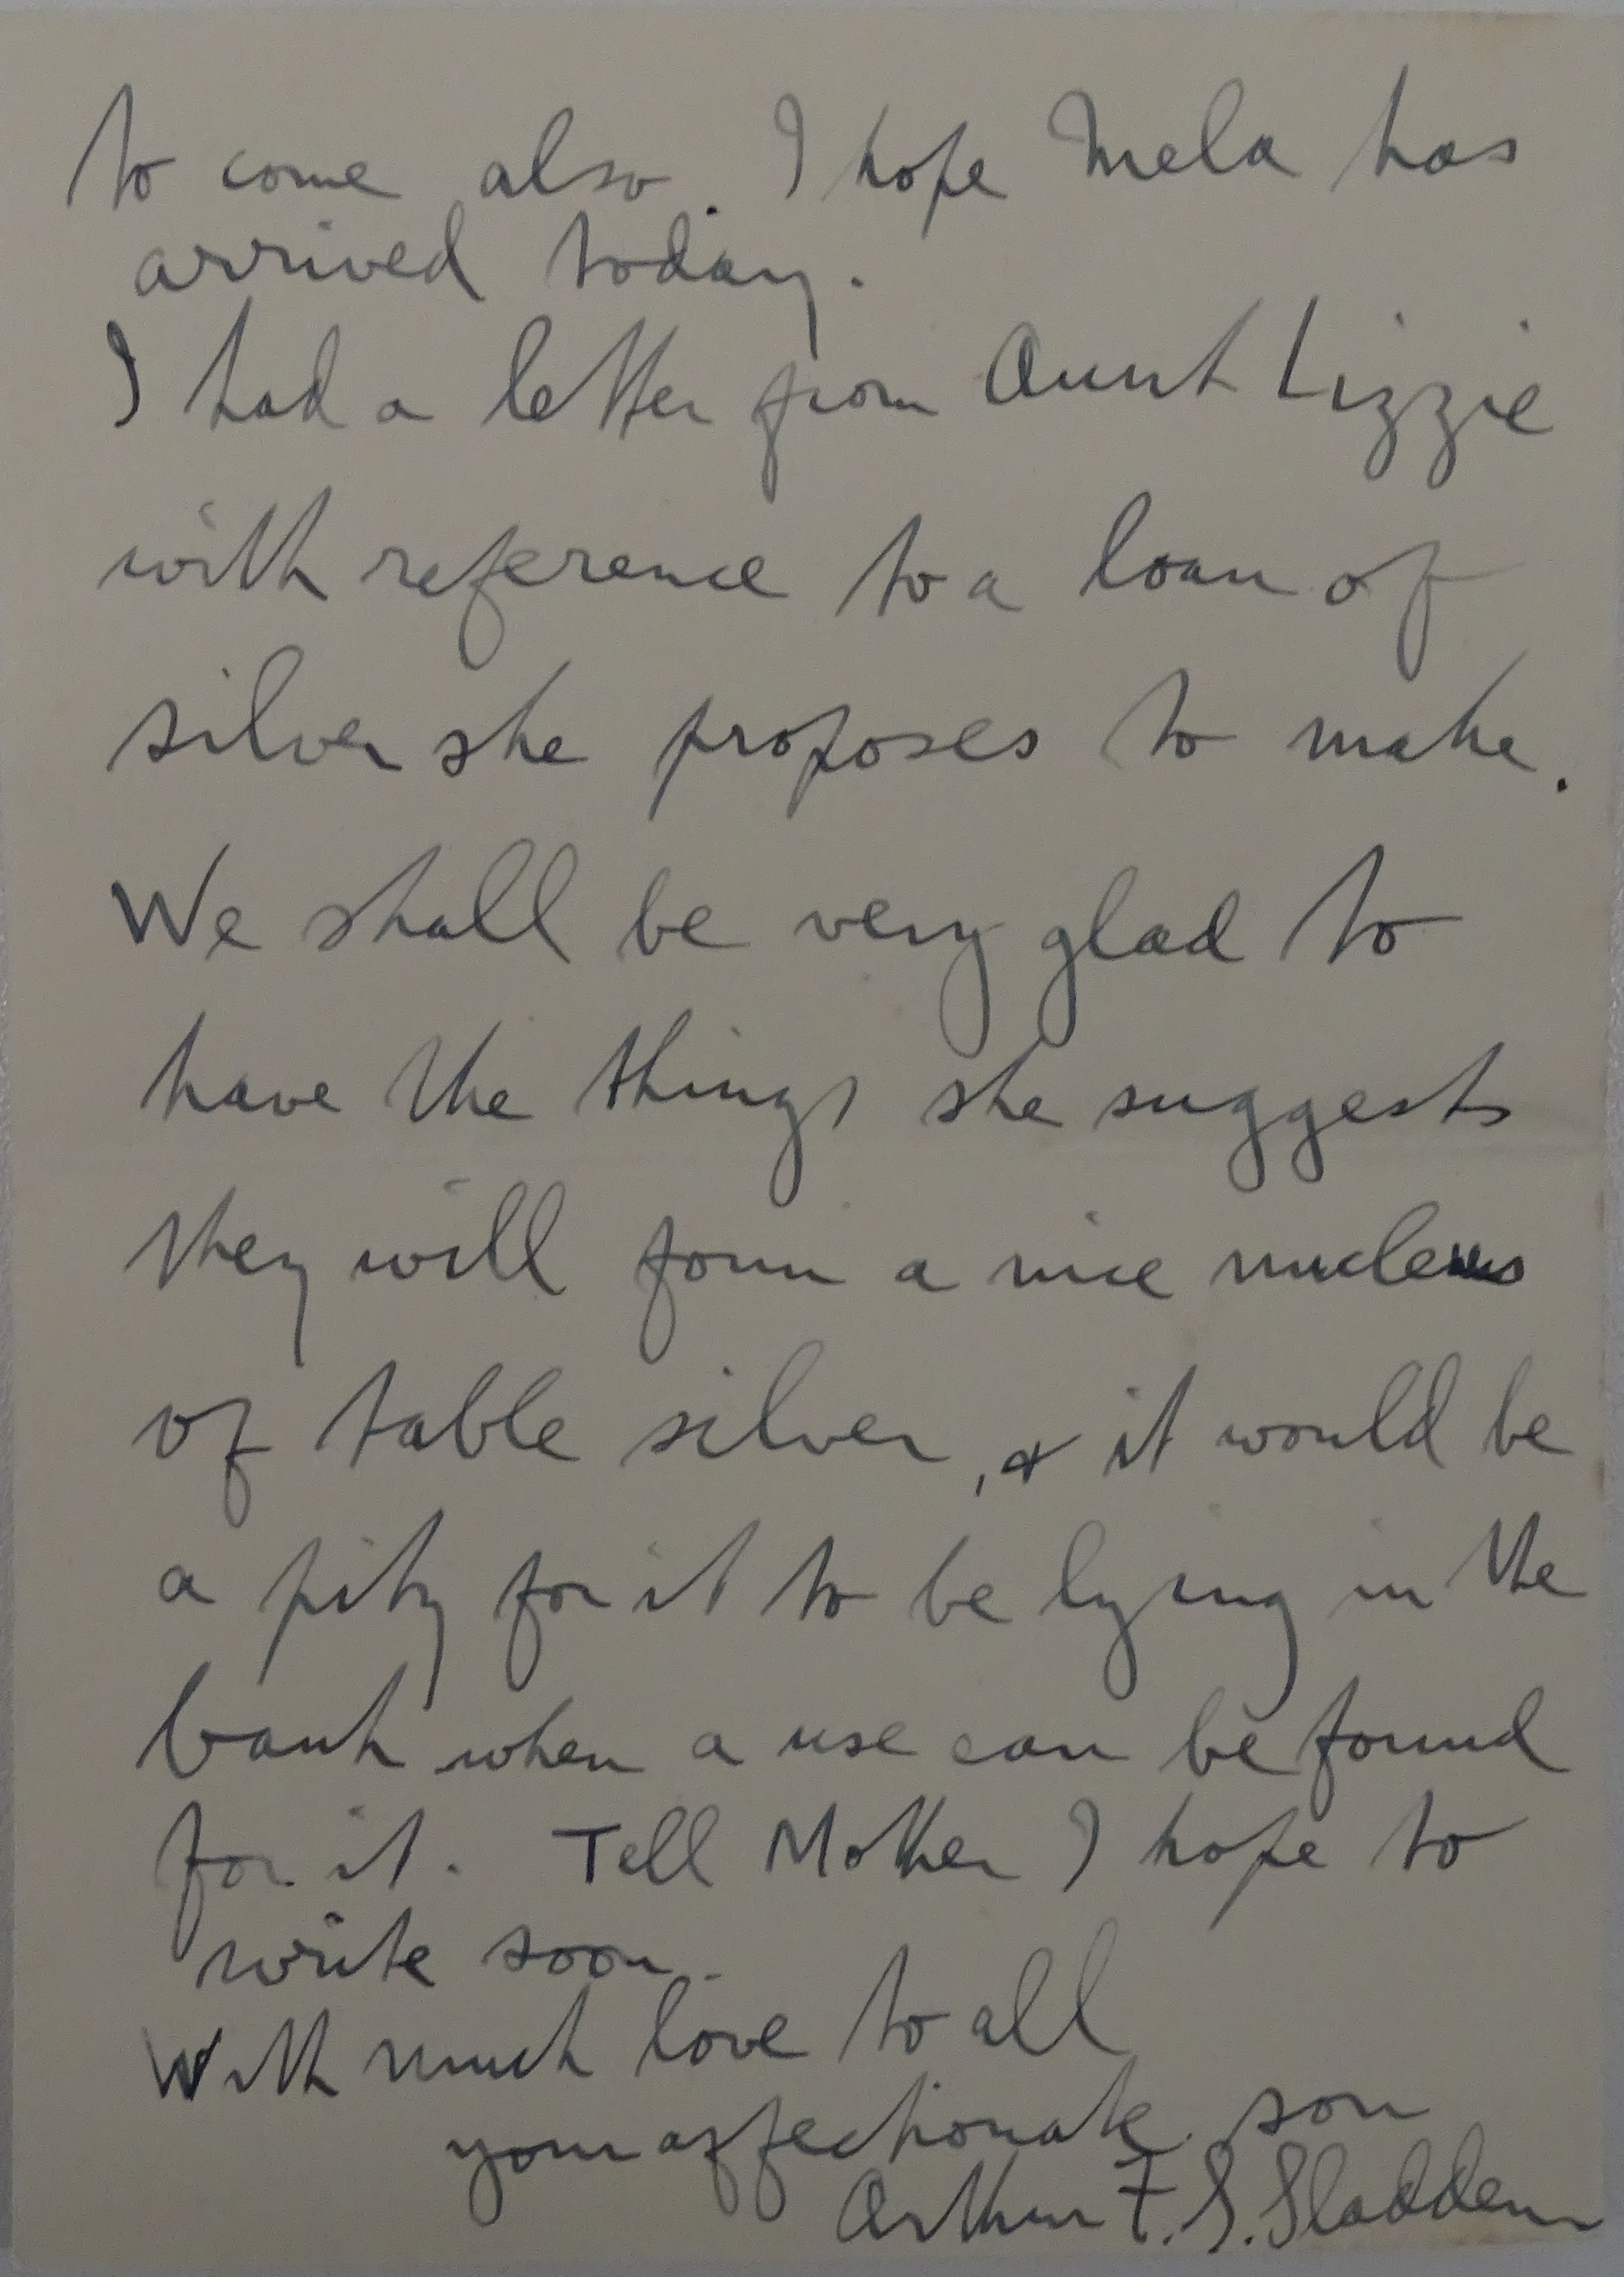 to come also. I hope Mela has
arrived today.
I had a letter from Aunt Lizzie
with reference to a loan of
silver she proposes to make.
We shall be very glad to
have the things she suggests
they will form a nice nucleus
of table silver, & it would be
a pity for it to be lying in the
bank when a use can be found
for it. Tell Mother I hope to
write soon.
With much love to all
your affectionate son
Arthur F. S. Sladden